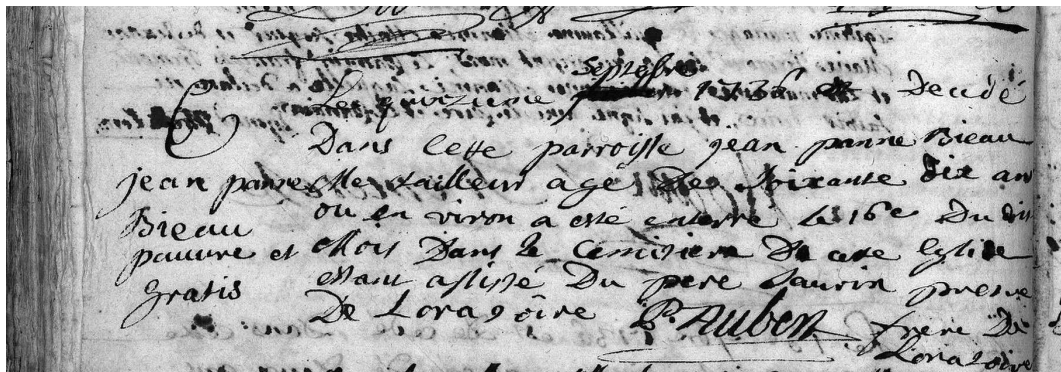 septebre
Le quinzieme 1736 est decedé
Dans cette parroisse jean panne Bieau
Me tailleur agé de soixante dix an
ou en viron a esté enterré le 16e Du dit
Mois Dans le cimitiere De cete Eglise
estant assisté Du pere Saurin prestre
De Loratoire P. Aubert frere De
Loratoire
jean panne
Bieau
pauvre et
gratis